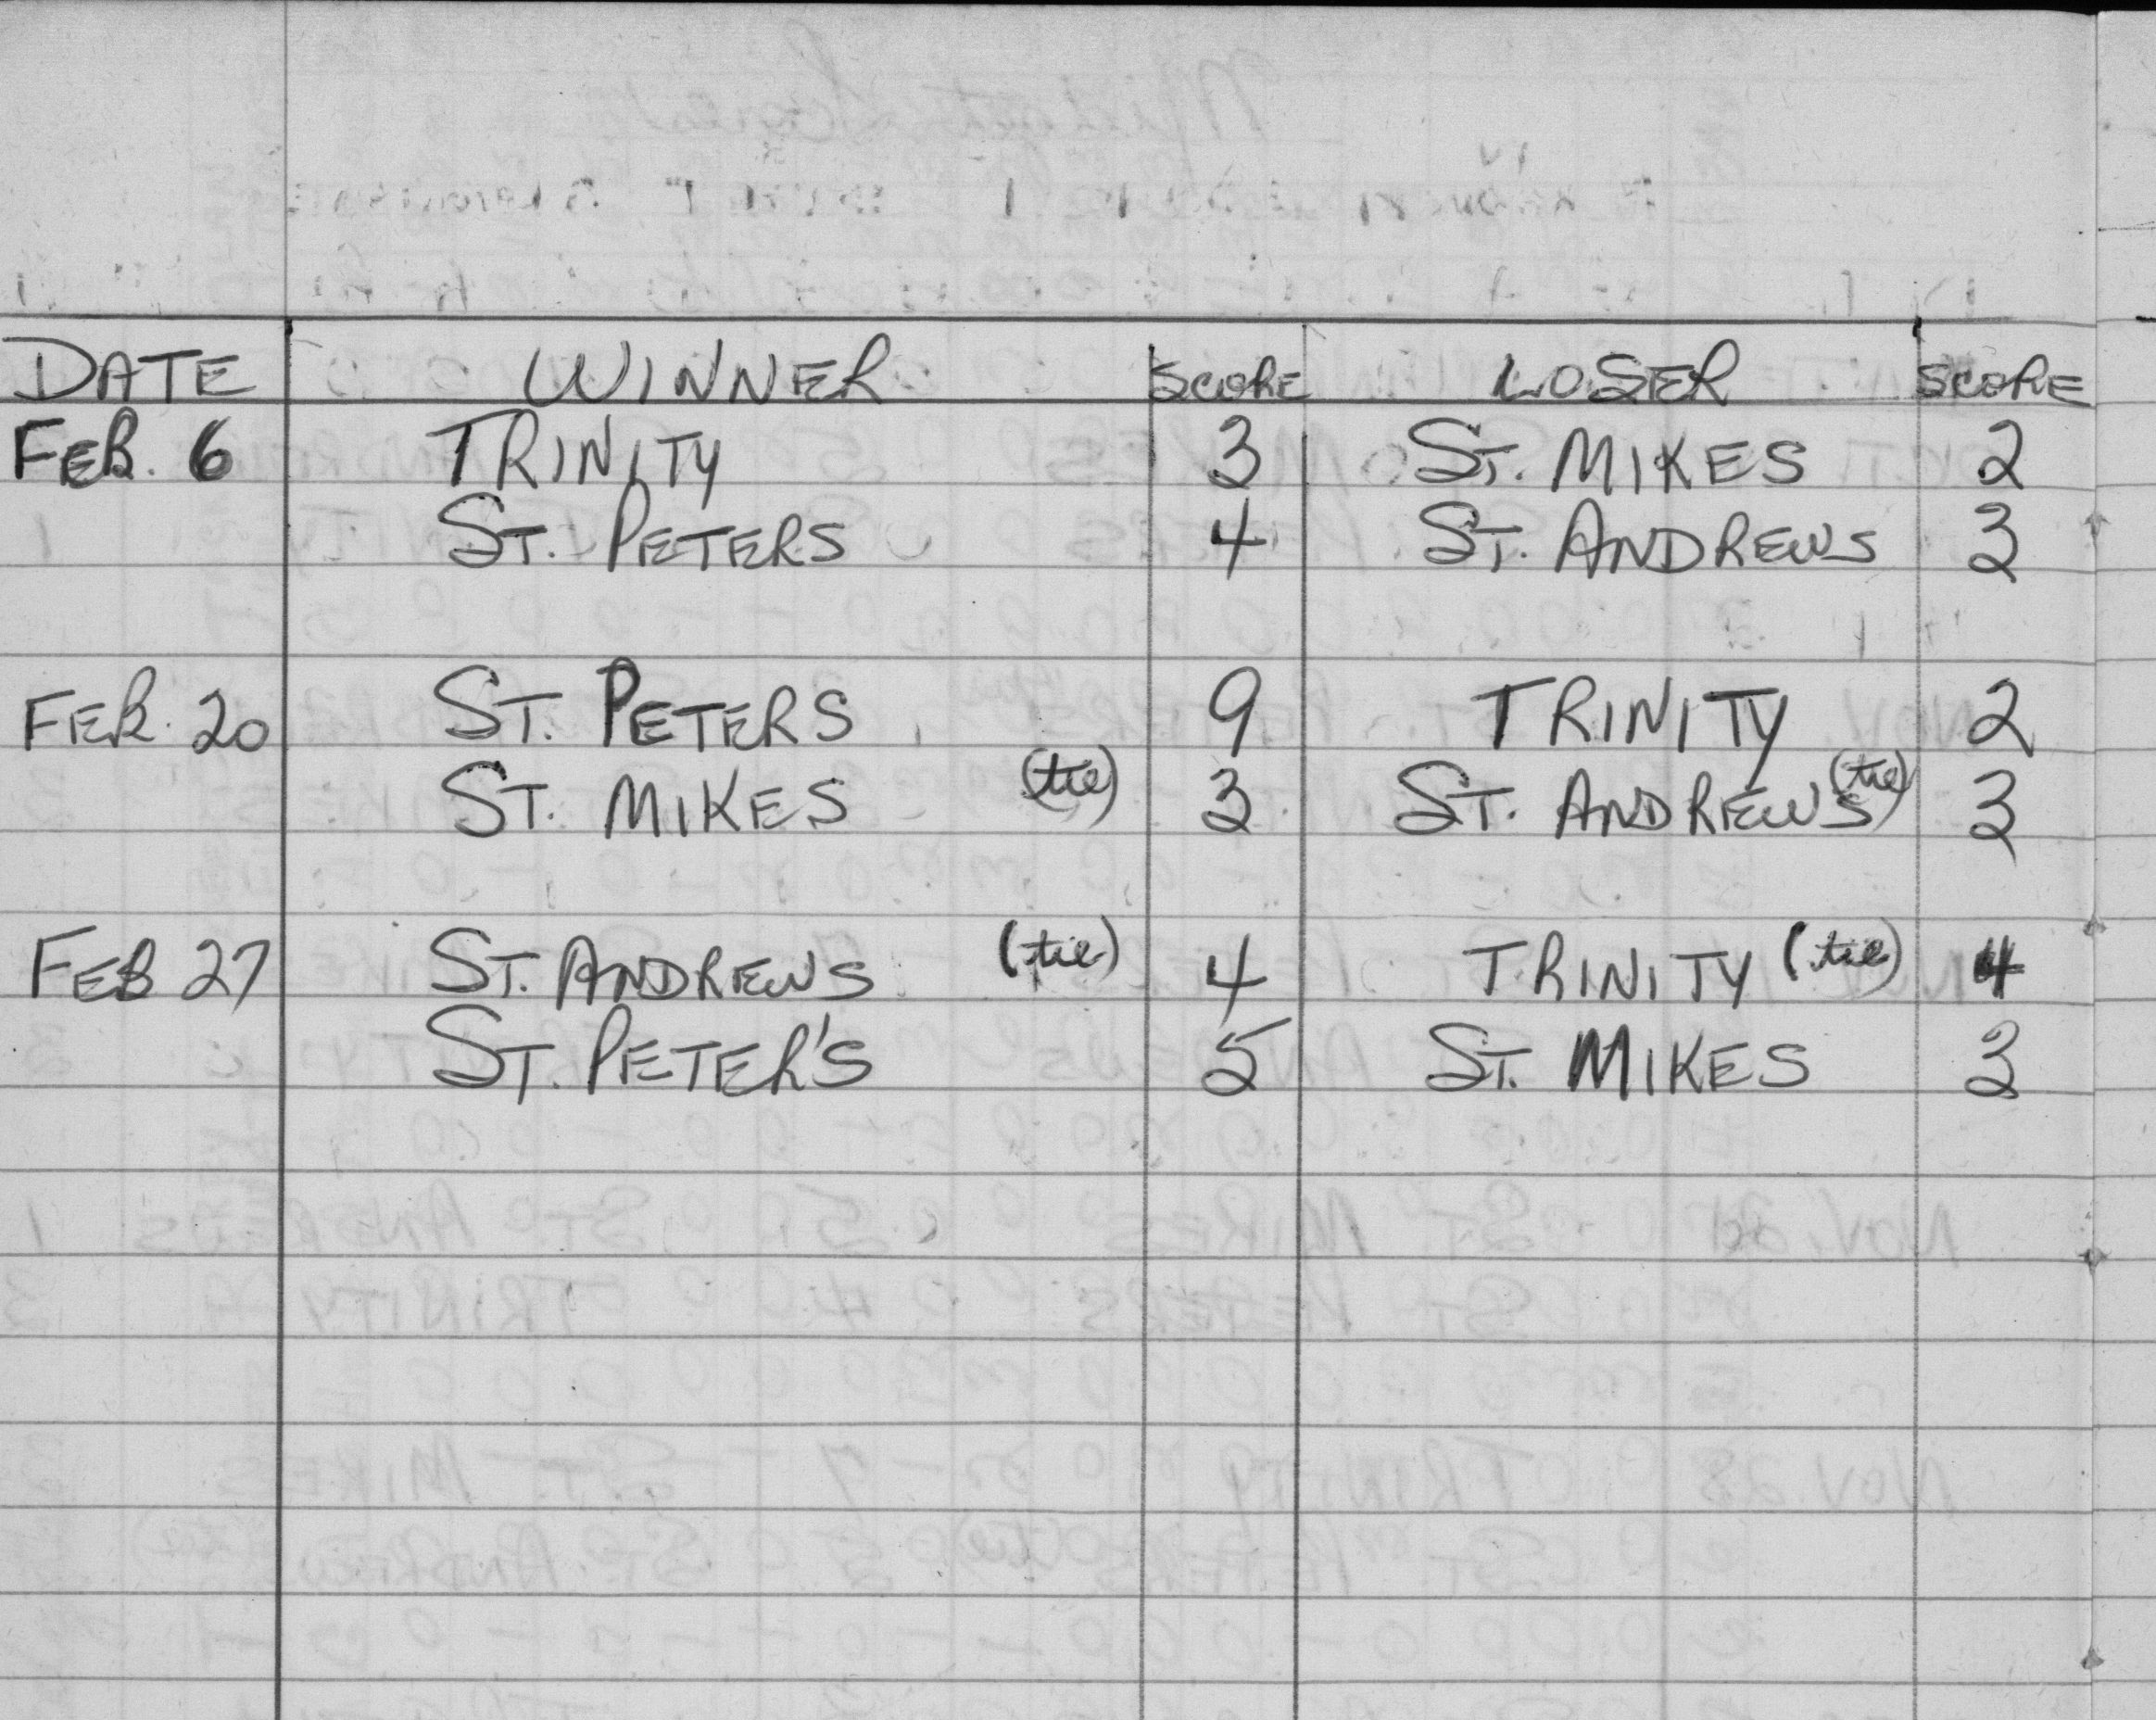 DATE WINNER SCORE LOSER SCORE
FEB. 6 TRINITY 3 ST. MIKES 2
ST. PETERS 4 ST. ANDREWS 3
FEB. 20 ST. PETERS 9 TRINITY 2
ST. MIKES (tie) 3 ST. ANDREWS (tie) 3
FEB 27 ST. ANDREWS (tie) 4 TRINITY (tie) 4
ST. PETER'S 5 ST. MIKES 3